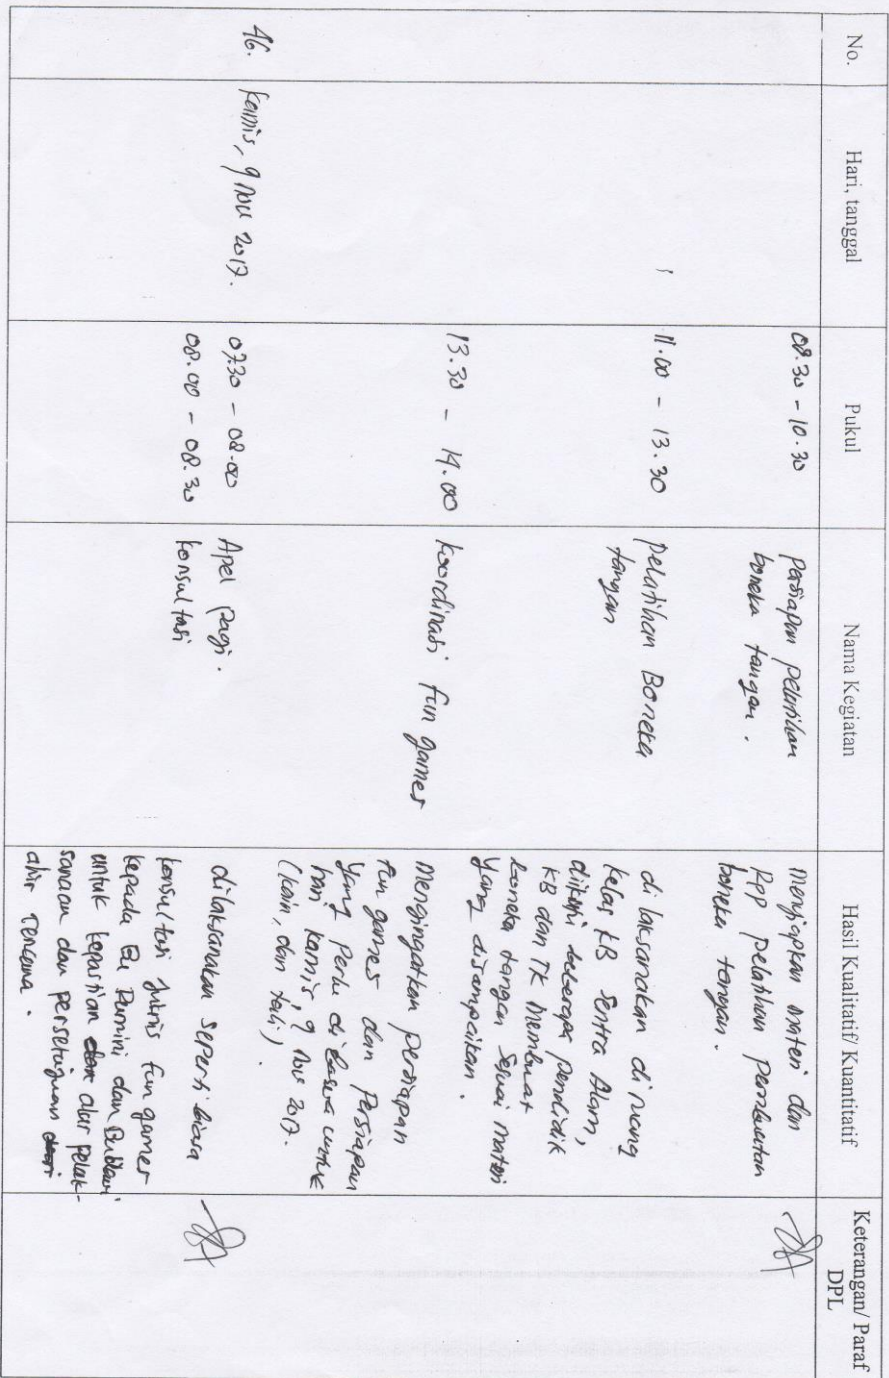 No.
Hari, tanggal
Pukul
Nama Kegiatan
Hasil Kualitatif/ Kuantitatif
Keterangan/ Paraf
DPL
08.30 - 10.30
persiapan pelatihan
boneka tangan.
menyiapkan materi dan
RPP pelatihan pembuatan
boneka tangan.
11.00 - 13.30
pelatihan Boneka
tangan
di laksanakan di ruang
kelas KB Sentra Alam,
diikuti beberapa pendidik
KB dan TK membuat
boneka tangan sesuai materi
yang disampaikan.
13.30 - 14.00
koordinasi fun games
Mengingatkan persiapan
fun games dan persiapan
yang perlu di bawa untuk
hari kamis, 9 nov 2017.
(kain, dan tali).
46.
kamis, 9 nov 2017.
07.30 - 08.00
Apel pagi.
dilaksanakan seperti biasa
08.00 - 08.30
konsultasi
konsultasi juknis fun games
kepada Bu Rumini dan
untuk kepastian dan alur pelak-
sanaan dan persetujuan dari
ahir rencana.